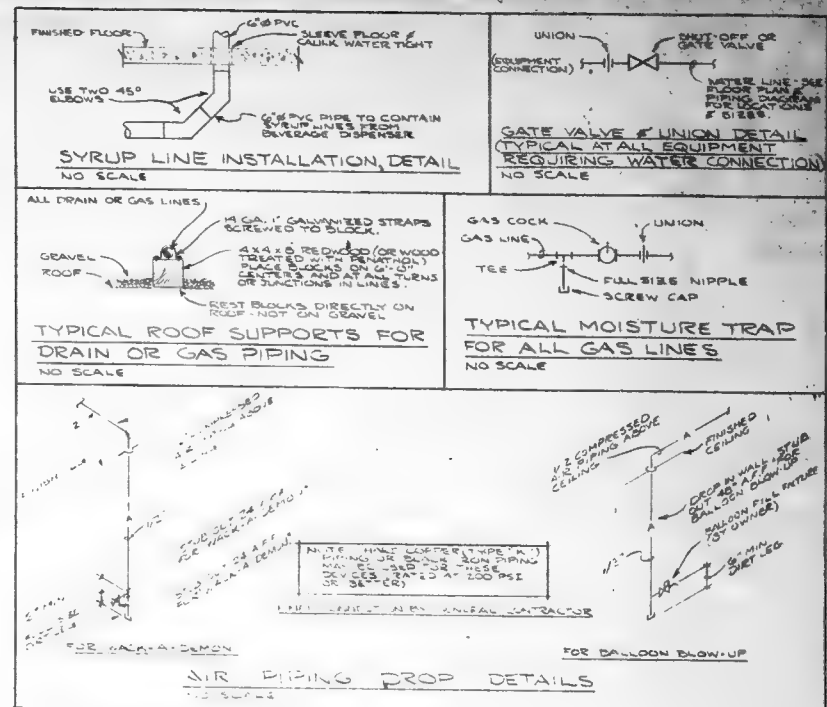 6"Ø PVC
FINISHED FLOOR
SLEEVE FLOOR &
CAULK WATER TIGHT
USE TWO 45°
ELBOWS
6"Ø PVC PIPE TO CONTAIN
SYRUP LINES FROM
BEVERAGE DISPENSER
SYRUP LINE INSTALLATION, DETAIL
NO SCALE
UNION
SHUT-OFF OR
GATE VALVE
(EQUIPMENT
CONNECTION)
WATER LINE - SEE
FLOOR PLAN &
PIPING DIAGRAM
FOR LOCATIONS
& SIZES.
GATE VALVE & UNION DETAIL
(TYPICAL AT ALL EQUIPMENT
REQUIRING WATER CONNECTION)
NO SCALE
ALL DRAIN OR GAS LINES
14 GA. 1" GALVANIZED STRAPS
SCREWED TO BLOCK.
GRAVEL
ROOF
4X4X8 REDWOOD (OR WOOD
TREATED WITH PENATHOL)
PLACE BLOCKS ON 6'-0"
CENTERS AND AT ALL TURNS
OR JUNCTIONS IN LINES.
REST BLOCKS DIRECTLY ON
ROOF - NOT ON GRAVEL
TYPICAL ROOF SUPPORTS FOR
DRAIN OR GAS PIPING
NO SCALE
GAS COCK
UNION
GAS LINE
TEE
FULL SIZE NIPPLE
SCREW CAP
TYPICAL MOISTURE TRAP
FOR ALL GAS LINES
NO SCALE
2"
A
1/2"
FOR WACK-A-DEMON
STUB OUT 24 A.F.F.
FOR WACK-A-DEMON
NOTE: HARD COPPER (TYPE "K")
PIPING OR BLACK IRON PIPING
MAY BE USED FOR THESE
DEVICES (RATED AT 200 PSI
OR BETTER)
BY GENERAL CONTRACTOR
FOR WACK-A-DEMON
1/2 COMPRESSED
AIR PIPING ABOVE
CEILING
A
FINISHED
CEILING
DROP IN WALL & STUB
OUT 48" A.F.F. FOR
BALLOON BLOW-UP
A
BALLOON FILL FIXTURE
(BY OWNER)
1/2"
6" MIN.
DIRT LEG
FOR BALLOON BLOW-UP
AIR PIPING DROP DETAILS
NO SCALE